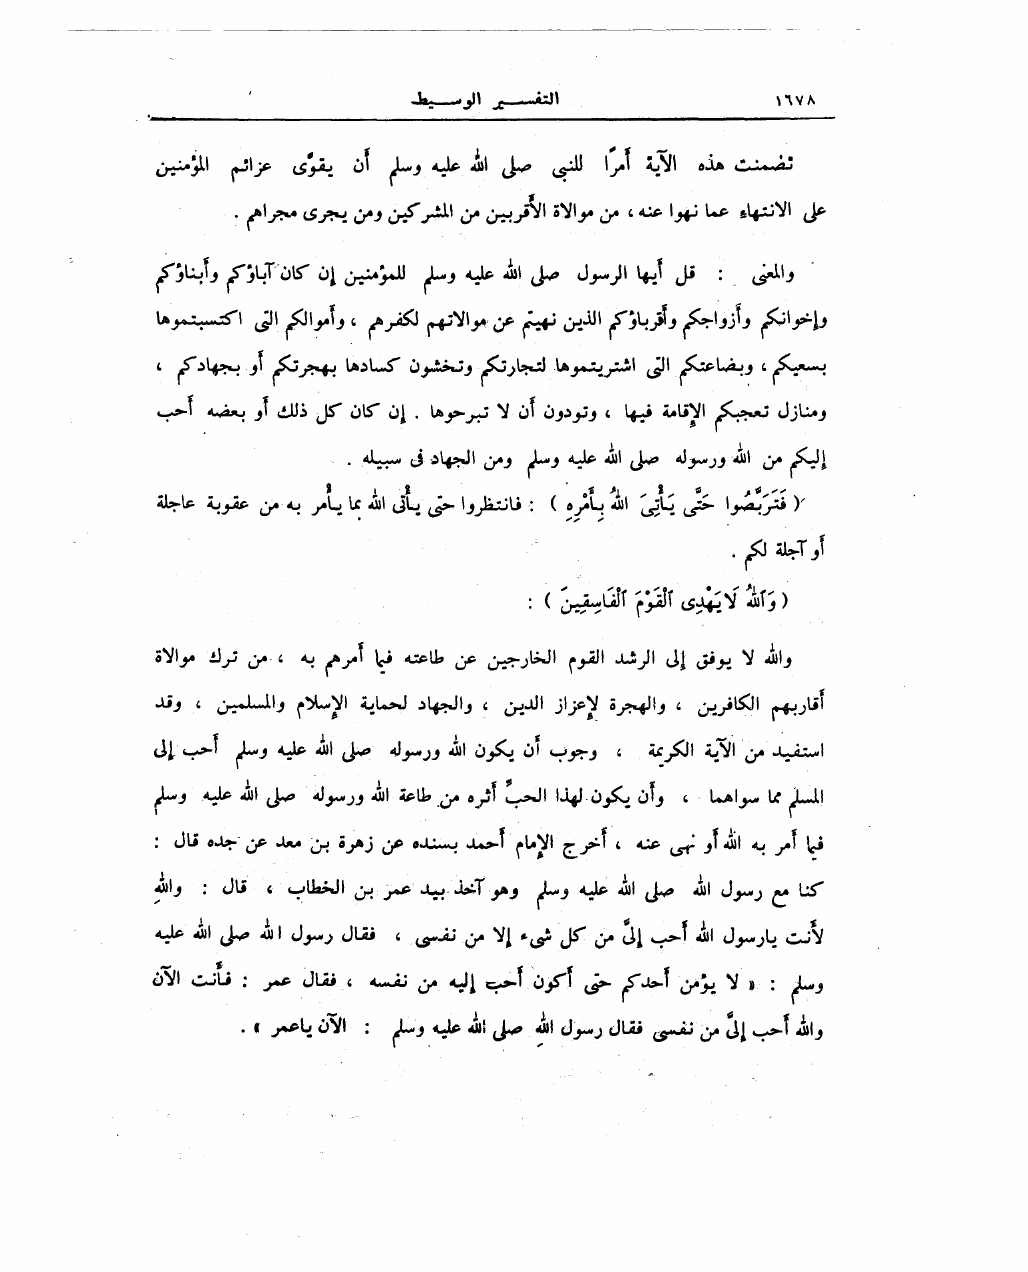 ١٦٧٨ التفسير الوسيط
تضمنت هذه الآية أمرًا للنبى صلى الله عليه وسلم أن يقوِّى عزائم المؤمنين
على الانتهاء عما نهوا عنه ، من موالاة الأقربين من المشركين ومن يجرى مجراهم .
والمعنى : قل أيها الرسول صلى الله عليه وسلم للمؤمنين إن كان آباؤكم وأبناؤكم
وإخوانكم وأزواجكم وأقرباؤكم الذين نهيتم عن موالاتهم لكفرهم ، وأموالكم التى اكتسبتموها
بسعيكم ، وبضاعتكم التى اشتريتموها لتجارتكم وتخشون كسادها بهجرتكم أو بجهادكم ،
ومنازل تعجبكم الإقامة فيها ، وتودون أن لا تبرحوها . إن كان كل ذلك أو بعضه أحب
إليكم من الله ورسوله صلى الله عليه وسلم ومن الجهاد فى سبيله .
( فَتَرَبَّصُوا حَتَّى يَأْتِىَ اللهُ بِأَمْرِهِ ) : فانتظروا حتى يأْتى الله بما يأْمر به من عقوبة عاجلة
أو آجلة لكم .
( وَٱللهُ لَا يَهْدِى ٱلْقَوْمَ ٱلْفَاسِقِينَ ) :
والله لا يوفق إلى الرشد القوم الخارجين عن طاعته فيما أمرهم به ، من ترك موالاة
أقاربهم الكافرين ، والهجرة لإعزاز الدين ، والجهاد لحماية الإسلام والمسلمين ، وقد
استفيد من الآية الكريمة ، وجوب أن يكون الله ورسوله صلى الله عليه وسلم أحب إلى
المسلم مما سواهما ، وأن يكون لهذا الحبِّ أثره من طاعة الله ورسوله صلى الله عليه وسلم
فيما أمر به الله أو نهى عنه ، أخرج الإمام أحمد بسنده عن زهرة بن معد عن جده قال :
كنا مع رسول الله صلى الله عليه وسلم وهو آخذ بيد عمر بن الخطاب ، قال : واللهِ
لأنت يارسول الله أحب إلىَّ من كل شىء إلا من نفسى ، فقال رسول الله صلى الله عليه
وسلم : « لا يؤمن أحدكم حتى أكون أحب إليه من نفسه ، فقال عمر : فأنت الآن
والله أحب إلىَّ من نفسى فقال رسول اللهِ صلى الله عليه وسلم : الآن ياعمر » .